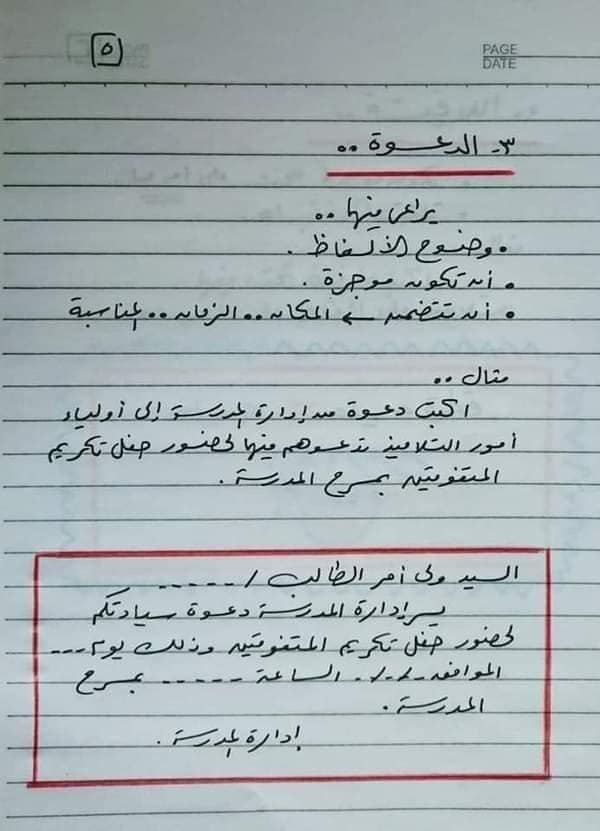 ٥
PAGE
DATE
٣- الدعوة ..
يراعى فيها ..
• وضوح الألفاظ .
• أن تكون موجزة .
• أن تتضمن ← المكان .. الزمان .. المناسبة
مثال ..
اكتب دعوة من إدارة المدرسة إلى أولياء
أمور التلاميذ تدعوهم فيها لحضور حفل تكريم
المتفوقين بمسرح المدرسة .
السيد ولى أمر الطالب / -----
يسر إدارة المدرسة دعوة سيادتكم
لحضور حفل تكريم المتفوقين وذلك يوم ---
الموافق -/-/- الساعة ----- بمسرح
المدرسة .
إدارة المدرسة .